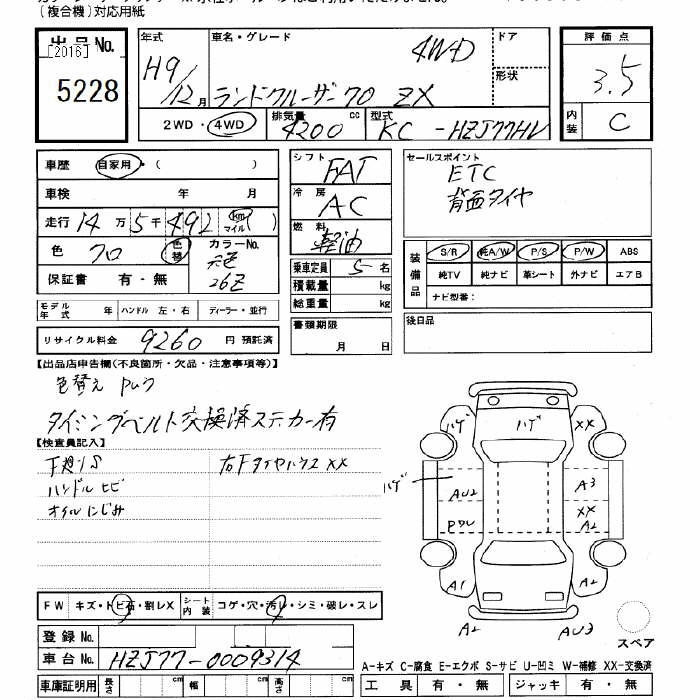 (複合機)対応用紙
出品No.
[2016]
5228
年式
H9/12月
車名・グレード
4WD
ランドクルーザー70 ZX
ドア
形状
2WD・4WD
排気量 4200 cc
型式 KC-HZJ77HV
評価点
3.5
内装 C
車歴 自家用・( )
車検 年 月
走行 14万5千492 km マイル ( )
色 クロ 色替
カラーNo.
元色
26Z
保証書 有・無
モデル年式 年 ハンドル 左・右 ディーラー・並行
リサイクル料金 9260 円 預託済
シフト FAT
冷房 AC
燃料 軽油
乗車定員 5 名
積載量 kg
総重量 kg
書類期限
月 日
セールスポイント
ETC
背面タイヤ
装備品
S/R 純A/W P/S P/W ABS
純TV 純ナビ 革シート 外ナビ エアB
ナビ型番:
後日品
【出品店申告欄(不良箇所・欠品・注意事項等)】
色替え
タイミングベルト交換済ステッカー有
【検査員記入】
下廻りS
右Fタイヤハウスxx
ハンドルヒビ
オイルにじみ
ハゲ ハゲ XX
ハゲ AU2 A3
XX
A2
A1 A2
A2 AU3
スペア
FW キズ・トビ石・割レX シート内装 コゲ・穴・汚レ・シミ・破レ・スレ
登録No.
車台No. HZJ77-0009314
車庫証明用 長さ cm 幅 cm 高さ cm
A−キズ C−腐食 E−エクボ S−サビ U−凹ミ W−補修 XX−交換済
工具 有・無 ジャッキ 有・無